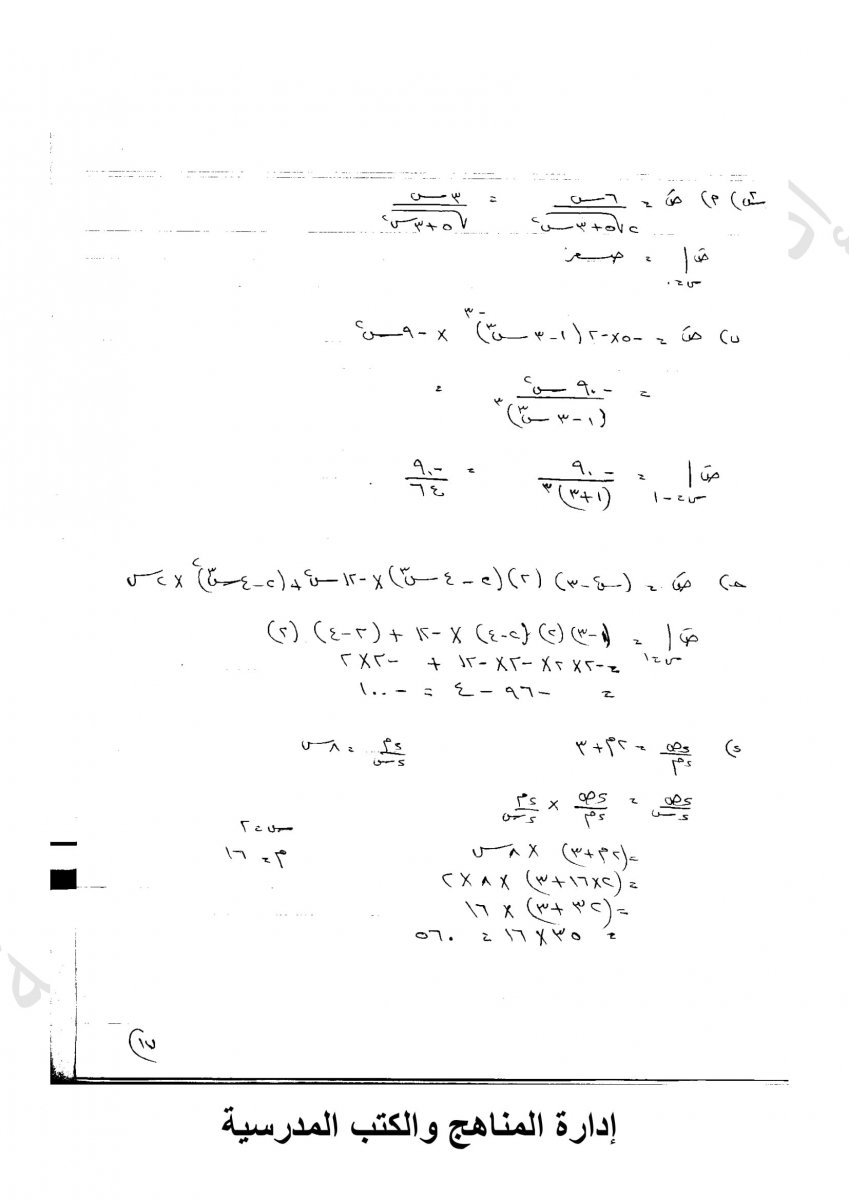 س٢) م) صَ = ٦س / ٢√(٥+٣س٢) = ٣س / √(٥+٣س٢)
صَ | س=٠ = صفر
ب) صَ = -٥×-٢(١-٣س٣)-٣ × -٩س٢
= -٩٠س٢ / (١-٣س٣)٣ =
صَ | س=-١ = -٩٠ / (١+٣)٣ = -٩٠ / ٦٤
حـ) صَ = (س٢-٣)(٢)(٢-٤س٣)×-١٢س٢+(٢-٤س٣)٢×٢س
صَ | س=١ = (١-٣)(٢)(٢-٤)×-١٢+(٢-٤)(٢)
=-٢×٢×-٢×-١٢ + -٢×٢
= -٩٦-٤ = -١٠٠
د) دص/دم = ٢م+٣ دم/دس = ٨س
دص/دس = دص/دم × دم/دس
=(٢م+٣)×٨س س=٢
=(٢×١٦+٣)×٨×٢ م=١٦
=(٣٢+٣)×١٦
= ٣٥×١٦ = ٥٦٠
(١٧
إدارة المناهج والكتب المدرسية